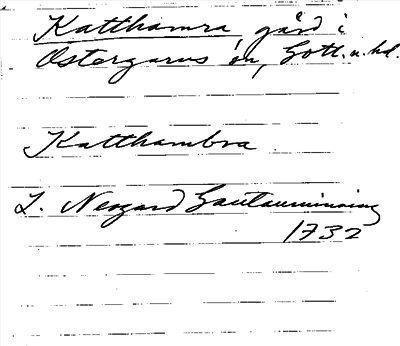 Katthamra gård i
Östergarns sn, Gotl. n. hd.
Katthambra
L. Neogard Gautauminning
1732